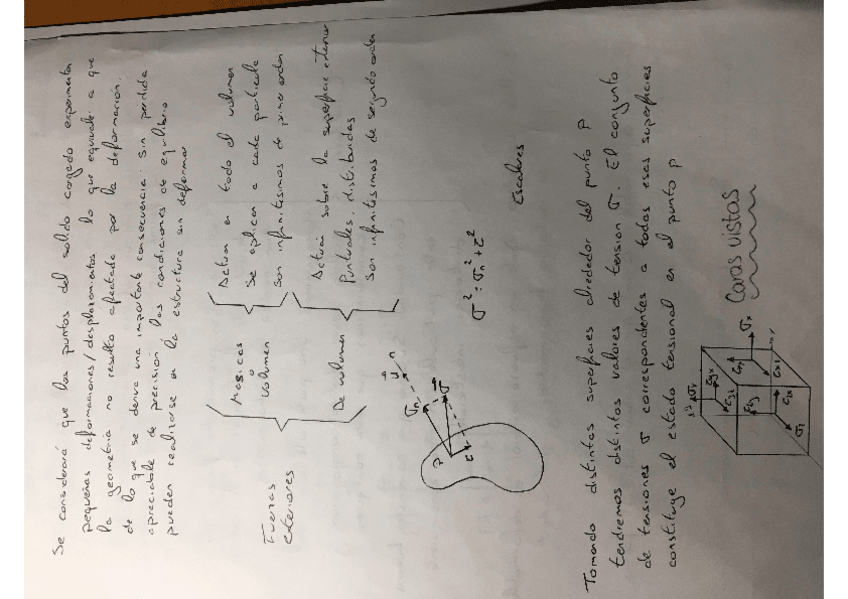 Se considerará que los puntos del solido cargado experimentan
pequeñas deformaciones/desplazamientos lo que equivale a que
la geometria no resulta afectada por la deformación.
de lo que se deriva una importante consecuencia: sin perdida
apreciable de precisión las condiciones de equilibrio
pueden realizarse en la estructura sin deformar
Fuerzas
exteriores
Masicas
o
volumen
Actuan en todo el volumen
Se aplican a cada particula
Son infinitesimos de primer orden
De volumen
Actuan sobre la superficie exterior
Puntuales, distribuidas
Son infinitesimos de segundo orden
P
σn
u
n
σ
τ
σ² = σn² + τ²
Escalares
Tomando distintas superficies alrededor del punto P
tendremos distintos valores de tension σ. El conjunto
de tensiones σ correspondientes a todas esas superficies
constituye el estado tensional en el punto P
Caras vistas